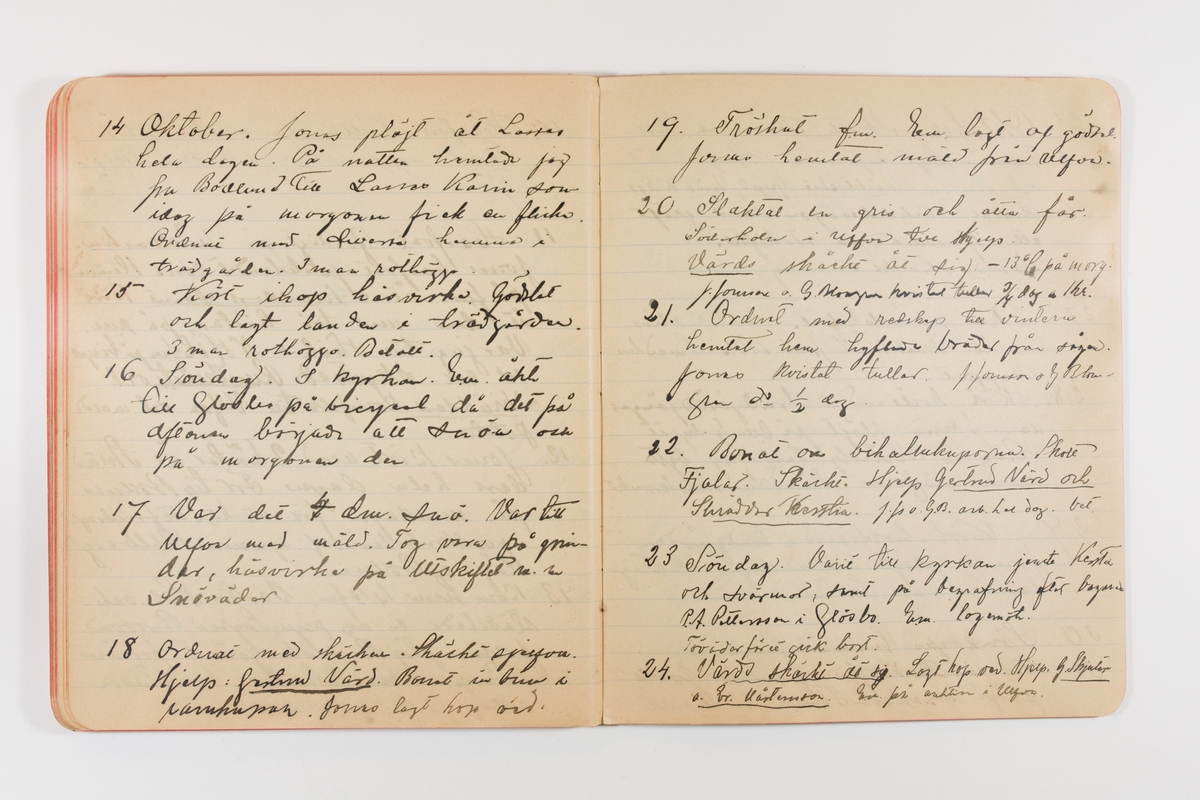 14 Oktober. Jonas plöjt åt Lasses
hela dagen. På natten hemtade jag
fru Bodlund till Lasses Karin som
idag på morgonen fick en flicka.
Ordnat med diverse hemma i
trädgården. 3 man rothögg.
15 Kört ihop häsvirke. Gödslat
och lagt landen i trädgården.
3 man rothöggo. Betalt.
16 Söndag. I kyrkan. Em. åkt
till Glösbo på bicycel då det på
aftonen började att snöa och
på morgonen den
17 Var det 4 dm. snö. Var till
Ulfva med mäld. Tog vara på grin-
dar, häsvirke på Utskiftet m. m
Snöväder
18 Ordnat med skäcken. Skäckt sjelfva.
Hjelp: Gertrud Värd. Bonat in bin i
ramkupan. Jonas lagt hop ved.
19. Tröskat fm. Em. lagt af gödsel.
Jonas hemtat mäld från Ulfva.
20 Slaktat en gris och åtta får.
Söderholm i Ulfva till Hjelp.
Värds skäckt åt sig. -13° på morg.
J. Jonsson o. G. kvistat tallar ½ dag a 1 kr.
21. Ordnat med redskap till vintern
hemtat hem hyflade bräder från sågen.
Jonas kvistat tallar. J. Jonsson o G Blom-
gren do ½ dag.
22. Bonat om bihallskuporna. Skott
Fjalar. Skäckt. Hjelp Gertrud Värd och
Skräddar Kerstin. J. Js o. G.B. arb. hel dag. bet.
23 Söndag. Varit till kyrkan jemte Kerstin
och svärmor, samt på begrafning efter
P.A. Pettersson i Glösbo. Em. logemöt.
Töväder före gick bort.
24. Värds skäckt åt sig. Lagt hop ved. Hjelp. G. Skjutar
o. Er. Mårtensson. Em. på auktion i Ulfva.